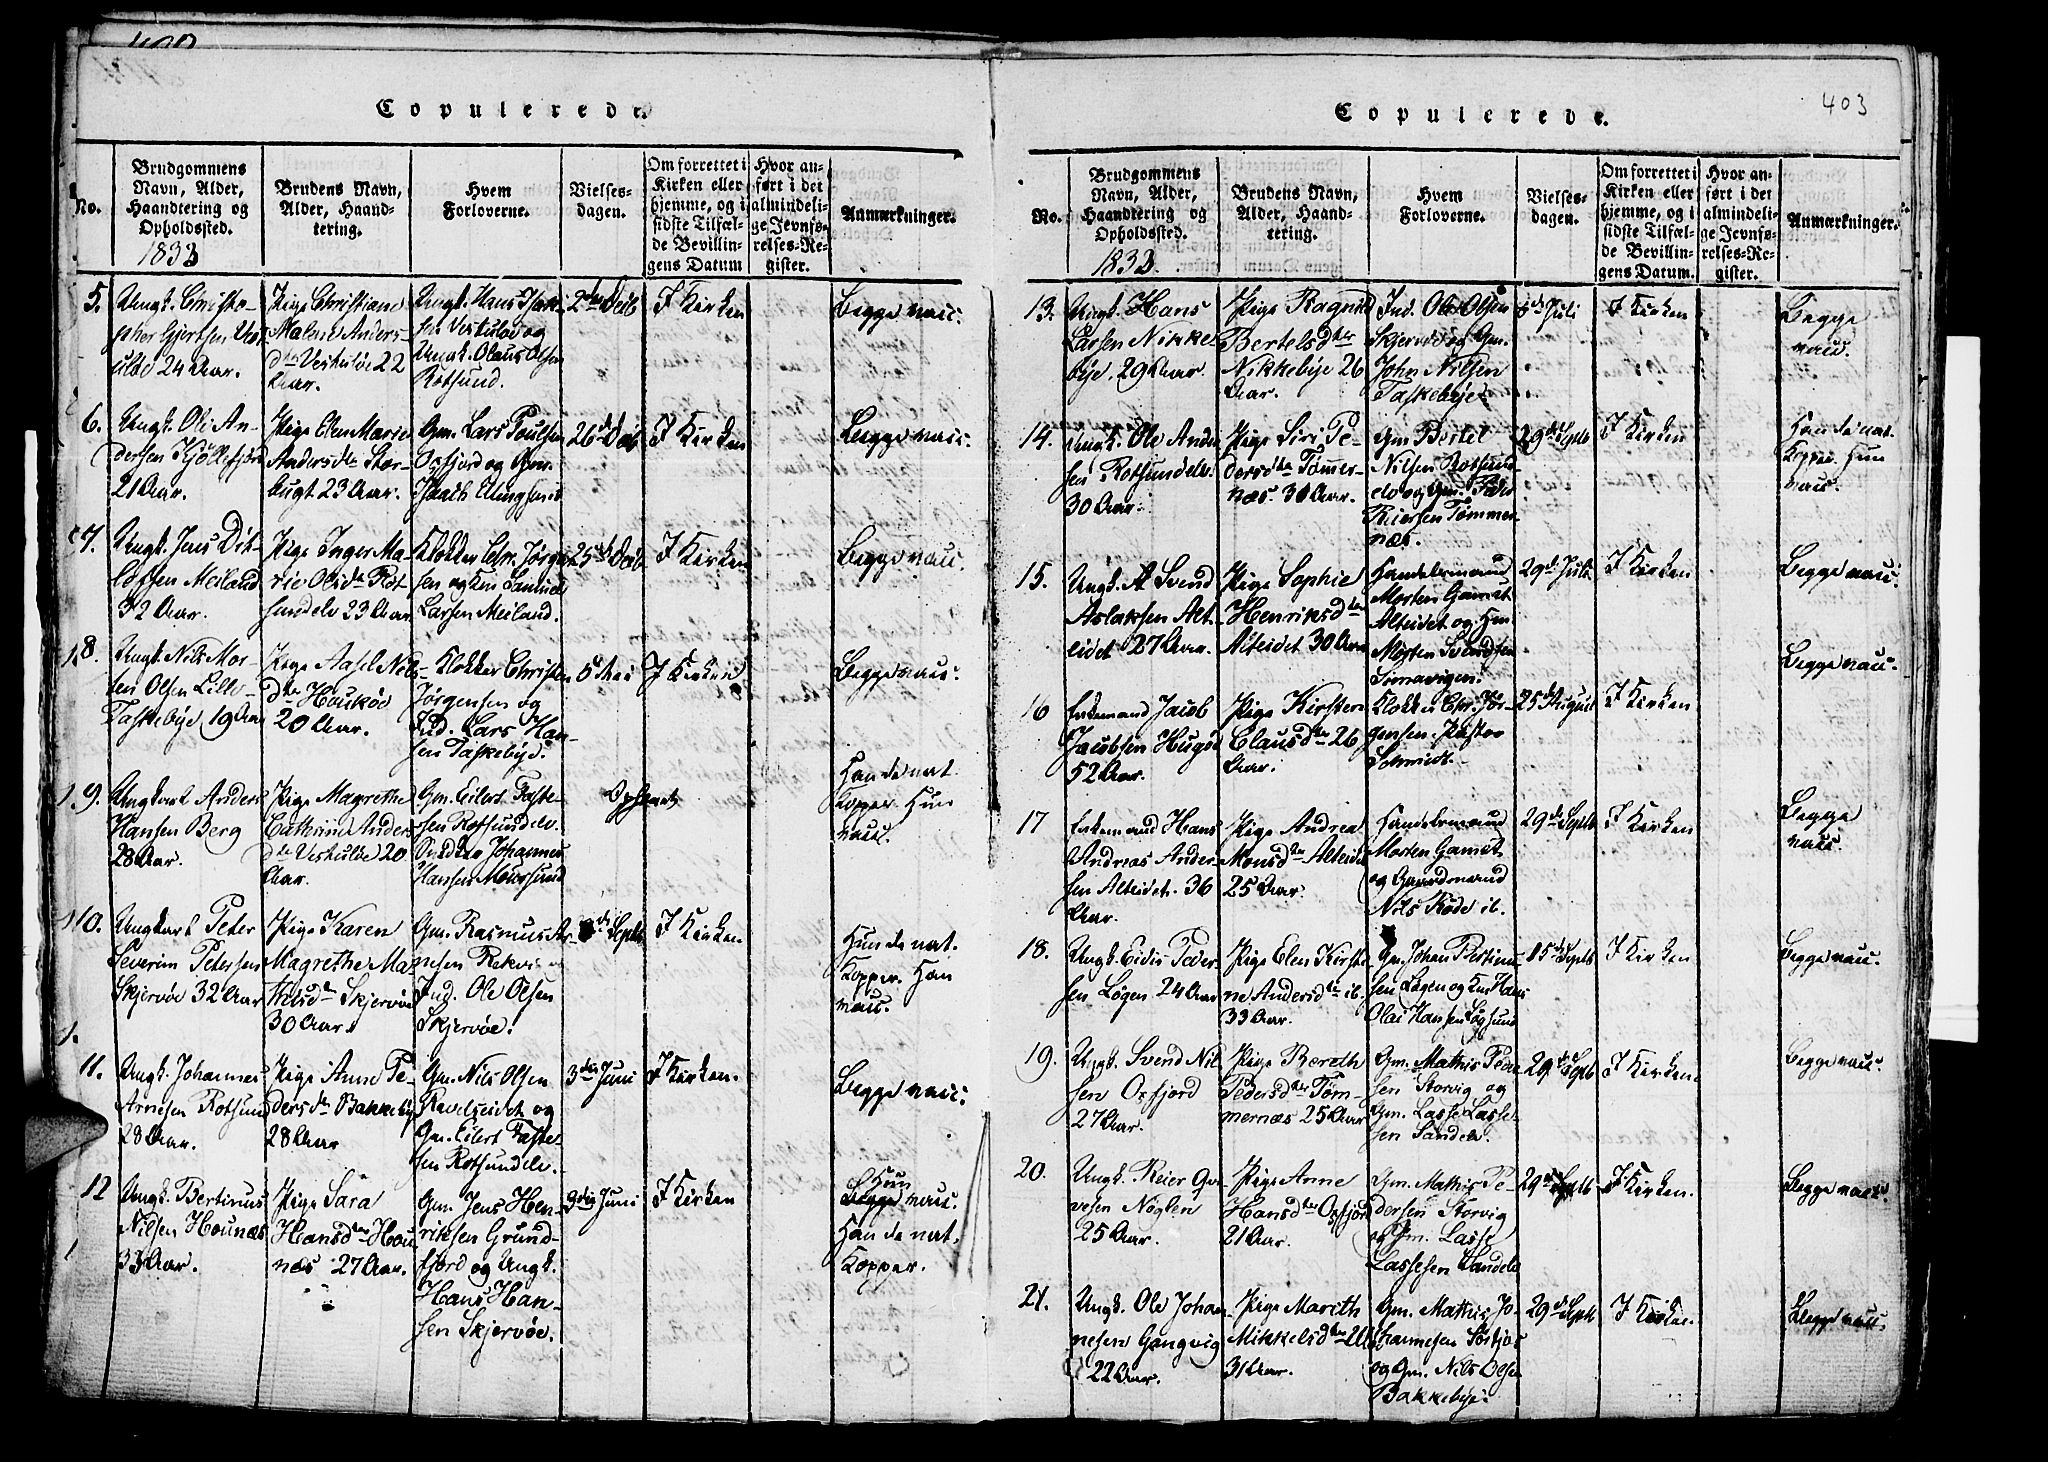 403
Copulerede.
No.
Brudgommens
Navn, Alder,
Haandtering og
Opholdssted.
1833
Brudens Navn,
Alder, Haand-
tering.
Hvem
Forloverne.
Vielses-
dagen.
Om forrettet i
Kirken eller
hjemme, og i
sidste Tilfæl-
de Bevillin-
gens Datum
Hvor an-
ført i det
almindeli-
ge Jevnfø-
relses-Re-
gister.
Anmærkninger.
5.
Ungk. Christo-
pher Gjertsen
24 Aar.
Pige Christiane
Malene Anders-
dtr 22
Aar.
Ungk. Hans
sen og
Ungk. Olaus Olsen
Rotsund.
2den
I Kirken
Begge vacc.
6.
Ungk. Ole An-
dersen Kjøllefjord
21 Aar.
Pige Elen Marie
Andersdtr Stor-
bugt 23 Aar.
Gm. Lars Poulsen
Oxfjord og Gm.
26d
I Kirken
Begge vacc.
7.
Ungk. Jens Dit-
lofsen Meiland
32 Aar.
Pige Inger Ma-
rie Olsdtr Rot-
sundelv 23 Aar
Klokker Chr. Jørgen-
sen og Samuel
Larsen Meiland.
25de
I Kirken
Begge vacc.
8.
Ungk. Nils Mor-
ten Olsen Lille-
Taskebye 19 Aar
Pige Aasel Nils-
dtr Houkøe
20 Aar.
Klokker Christen
Jørgensen og
Ind. Lars Han-
sen Taskebye.
5d
I Kirken
Begge vacc.
9.
Ungkarl Anders
Hansen Berg
28 Aar.
Pige Magrethe
Cathrine Anders
dtr 20
Aar.
Gm. Eilert Faste-
sen Rotsundelv.
Johannes
Hansen Maursund
Ophævet
Han de nat.
Kopper. Hun
vacc.
10.
Ungkarl Peter
Severin Petersen
Skjervøe 32 Aar
Pige Karen
Magrethe Ma-
thisdtr Skjervøe
30 Aar.
Gm. Rasmus Ar-
nesen Rekvig
Ind. Ole Olsen
Skjervøe.
Septb
I Kirken.
Hun de nat.
Kopper. Han
vacc.
11.
Ungk. Johannes
Arnesen Rotsund
28 Aar.
Pige Anne Pe-
dersdtr Bakkeby
28 Aar
Gm. Nils Olsen
Ravelseidet og
Gm. Eilert Faste-
sen Rotsundelv.
3die Juni
I Kirken.
Begge vacc.
12
Ungk. Bertinus
Nilsen Hounæs
33 Aar.
Pige Sara
Hansdtr Hou-
næs 27 Aar.
Gm. Jens Hen-
riksen Grund-
fjord og Ungk.
Hans Han-
sen Skjervøe.
9de Juni
I Kirken
Hun
Begge vacc.
Han de nat.
Kopper.
Copulerede.
No.
Brudgommens
Navn, Alder,
Haandtering og
Opholdssted.
1833.
Brudens Navn,
Alder, Haand-
tering.
Hvem
Forloverne.
Vielses-
dagen.
Om forrettet i
Kirken eller
hjemme, og i
sidste Tilfæl-
de Bevillin-
gens Datum.
Hvor an-
ført i det
almindeli-
ge Jevnfø-
relses-Re-
gister.
Anmærkninger.
13.
Ungk. Hans
Larsen Nikke-
bye, 29 Aar.
Pige Ragnild
Bertelsdtr
Nikkebye 26
Aar.
Ind. Ole Olsen
Skjervøe og Gm.
John Nilsen
Taskebye.
Juli
I Kirken
Begge
vacc.
14.
Ungk. Ole Ander-
sen Rotsundelv.
30 Aar.
Pige Siri Pe-
dersdtr Tømmer-
næs 30 Aar.
Gm Bertel
Nilsen Rotsund-
elv og Gm. Peder
Reiersen Tømmer-
næs.
29de Septb
I Kirken
Han de nat.
Kopper. Hun
vacc.
15.
Ungk. Svend
Aslaksen Alt-
eidet 27 Aar.
Pige Sophie
Henriksdtr
Alteidet 30 Aar
Handelsmand
Morten Gamst
Alteidet og
Morten Svendsen
29de Juli
I Kirken
Begge vacc.
16
Enkemand Jacob
Jacobsen Hugøe
52 Aar.
Pige Kirsten
Clausdtr 26
Aar.
Klokker Chr. Jør-
gensen. Pastor
Schmidt.
25de August
I Kirken
Begge vacc.
17
Enkemand Hans
Andreas Ander-
sen Alteidet. 36
Aar.
Pige Andrea
Monsdtr Alteidet
25 Aar.
Handelsmand
Morten Gamst
og Gaardmand
Nils Kode ib.
29de Septb
I Kirken
Begge
vacc.
18.
Ungk. Eidis Peder-
sen Løgen 24 Aar
Pige Elen Kirsti-
ne Andersdtr ib.
33 Aar.
Gm. Johan Bertinus-
sen Løgen og Hans
Olai Hansen Løgsund
15de Septb
I Kirken
Begge vacc.
19.
Ungk. Svend Nil-
sen Oxfjord
27 Aar.
Pige Bereth
Pedersdtr Tøm-
mernæs 25 Aar
Gm. Mathis Peder-
sen Storvig og
Gm. Lasse Lasse-
sen Sandelv.
29de Septb
I Kirken.
Begge vacc.
20.
Ungk. Reier Qv-
vesen Nøglen
25 Aar.
Pige Anne
Hansdtr Oxfjord
21 Aar.
Gm. Mathis Pe-
dersen Storvig
og Gm. Lasse
Lassesen Sandelv
29de Septb
I Kirken.
Begge vacc.
21.
Ungk. Ole Johan-
nesen Gangvig
22 Aar.
Pige Mareth
Mikkelsdtr
31 Aar.
Gm. Mathis Jo-
hannesen
og Gm. Nils Olsen
Bakkebye.
29de Septb
I Kirken.
Begge vacc.